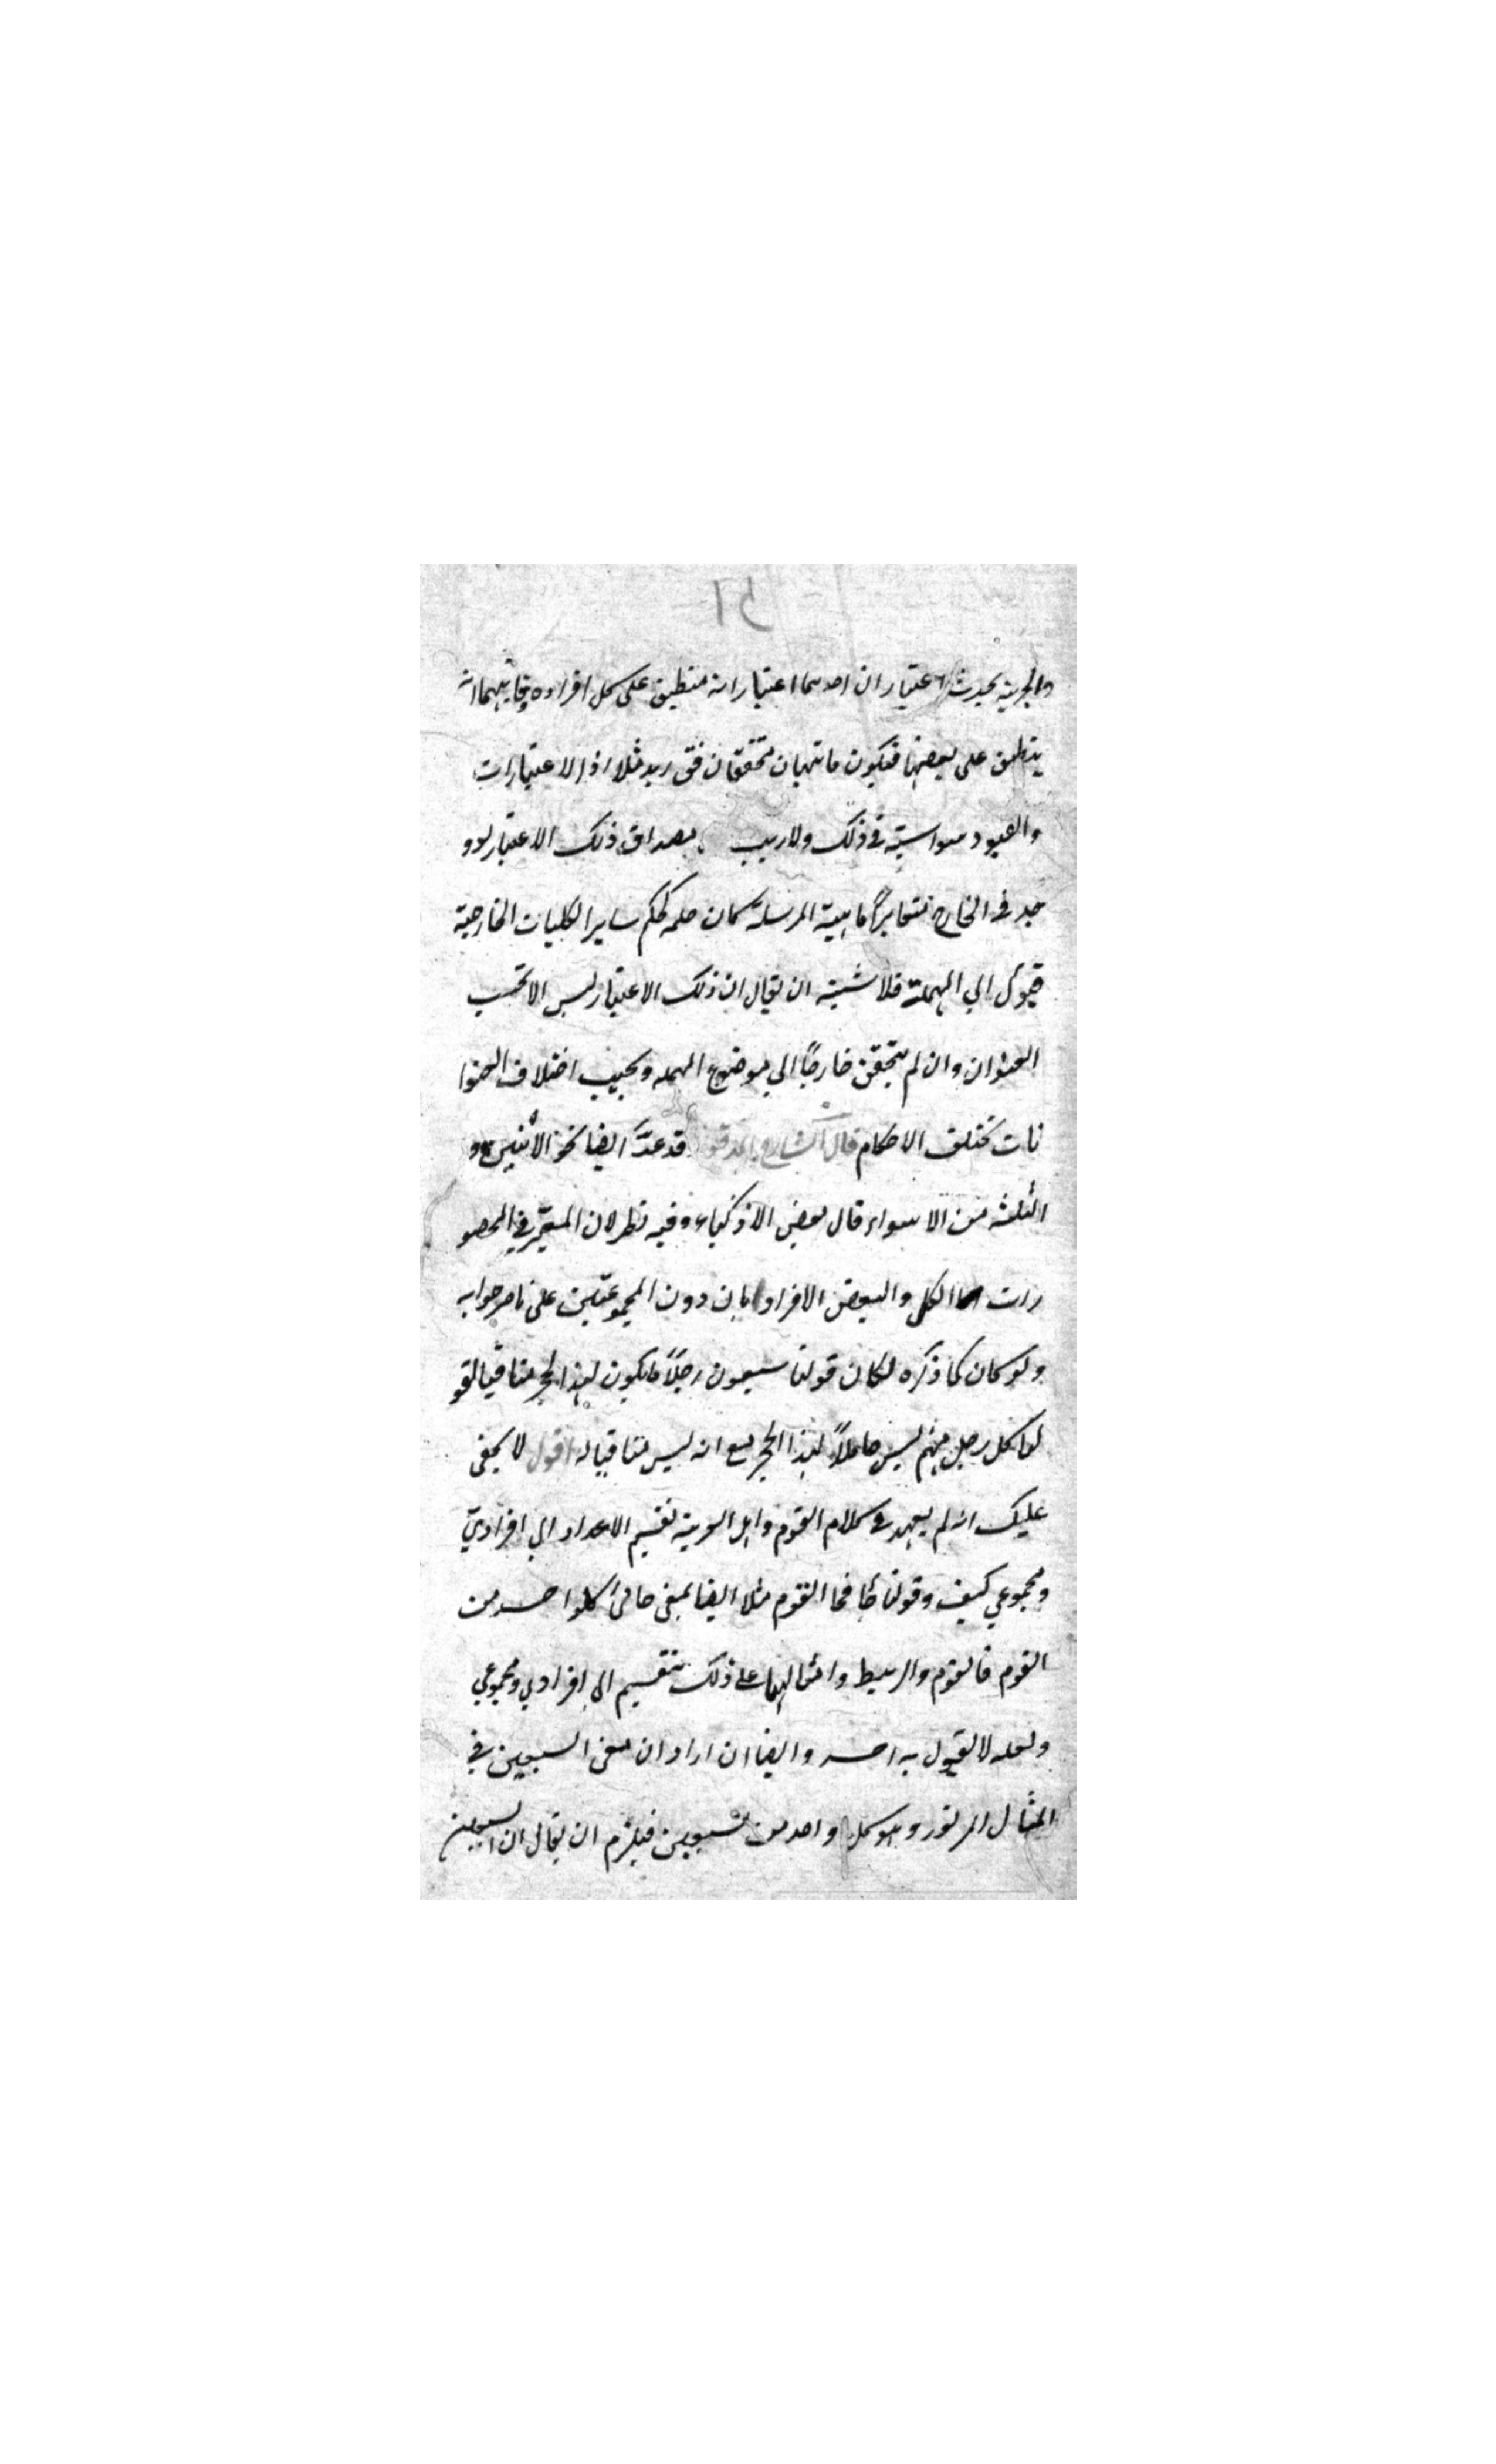 51
والجزئية يحدث اعتباران احدهما اعتبار انه منطبق على كل افراده وثانيهما انه
ينطبق على بعضها فيكون ماتهيان متحققان فى زيد مثلا اذ الاعتبارات
والقيود سواسية فى ذلك ولا ريب مصداق ذلك الاعتبار لو و
جد فى الخارج متغايرا ماهية المرسلة كان حكمه كحكم ساير الكليات الخارجية
فيؤل الى المهملة فلا شبهة ان يقال ان ذلك الاعتبار ليس الا بحسب
العنوان وان لم يتحقق خارجًا الى موضوع المهملة وبحسب اختلاف العنوا
نات تختلف الاحكام قال الشارح المدقق قد عدّ ايضا نحو الاثنين و
الثلثة من الاسوار قال بعض الاذكياء وفيه نظر لان المعتبر فى المحصو
رات الكل والبعض الافراديان دون المجموعيين على ما صرحوا به
ولو كان كما ذكره لكان قولنا سبعون رجلًا ما يكون لهذا الحجر منافيا لقو
لنا كل رجل منهم ليس حاملًا لهذا الحجر مع انه ليس منافيا له اقول لا يخفى
عليك انه لم يعهد فى كلام القوم واهل العربية تقسيم الاعداد الى افرادي
ومجموعي كيف وقولنا القوم مثلا ايضا بمعنى كل واحد من
القوم فالقوم والرهط وامثالهما على ذلك ينقسم الى افرادي ومجموعي
ولعله لا يقول به احد وايضا ان اراد ان معنى السبعين فى
المثال المزبور وهو كل واحد من سبعين فيلزم ان يقال ان السبعين